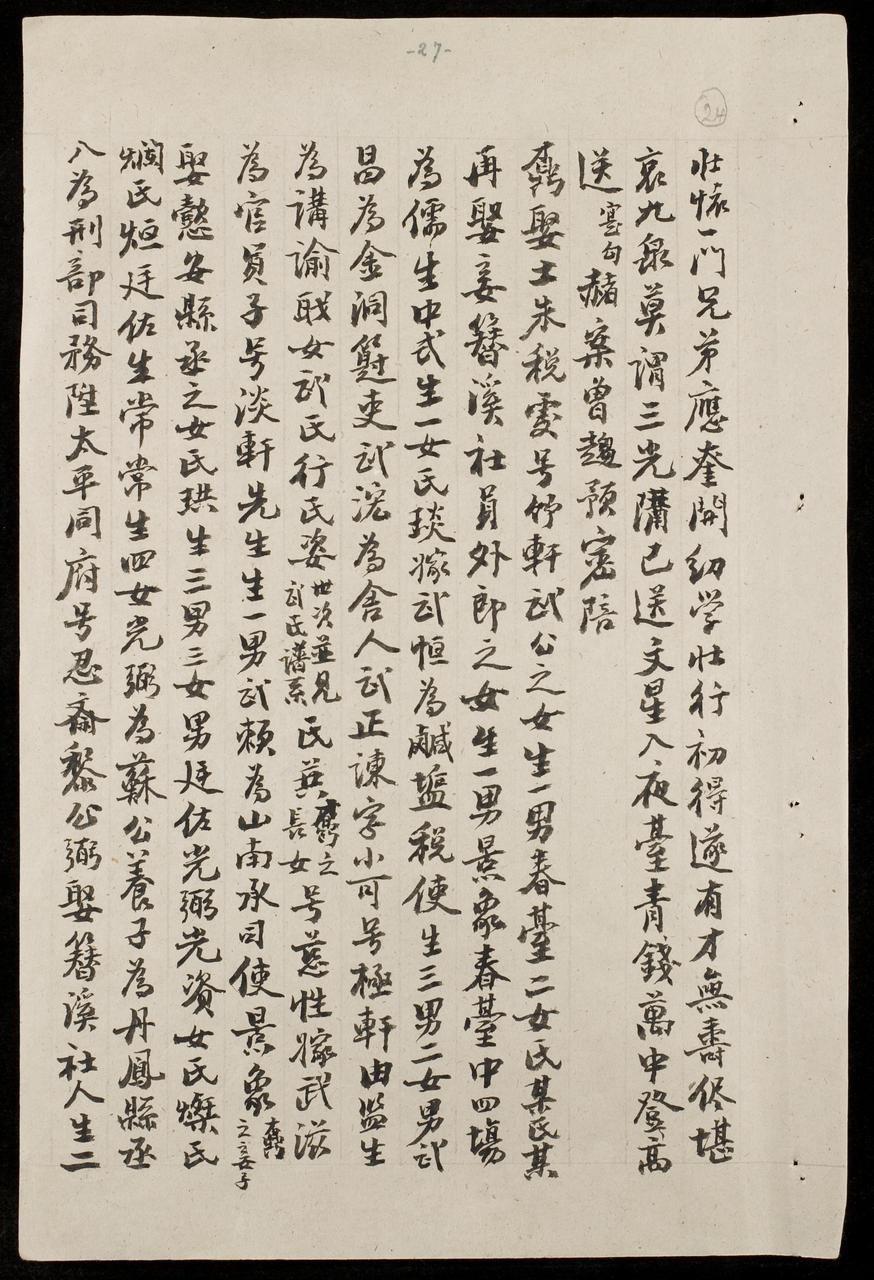 -27-
24
壮懐一門兄弟應奎開幼学壮行初得遂有才無壽侭堪
哀九泉莫謂三光隔已送文星入夜臺青錢萬中登高
送寔句赭案曾趨預宻陪
娶士朱税雯号竹軒武公之女生一男春䑓二女氏某氏某
再娶妾簪溪社員外郎之女生一男景象春䑓中四塲
為儒生中式生一女氏琰嫁武恒為鹹塩税使生三男二女男武
昌為金洞簿吏武滾為舍人武正諫字小可号極軒由监生
為講諭聀女武氏行氏姿世次並見武氏譜系氏英之長女号慈性嫁武滋
為官員子号淡軒先生生一男武頼為山南承司使景象之妾子
娶懿安縣丞之女氏珙生三男三女男廷佐光弼光資女氏燦氏
爛氏烜廷佐生常常生四女光弼為蘇公養子為丹鳳縣丞
八為刑部司務陞太平同府号忍齋黎公弼娶簪溪社人生二